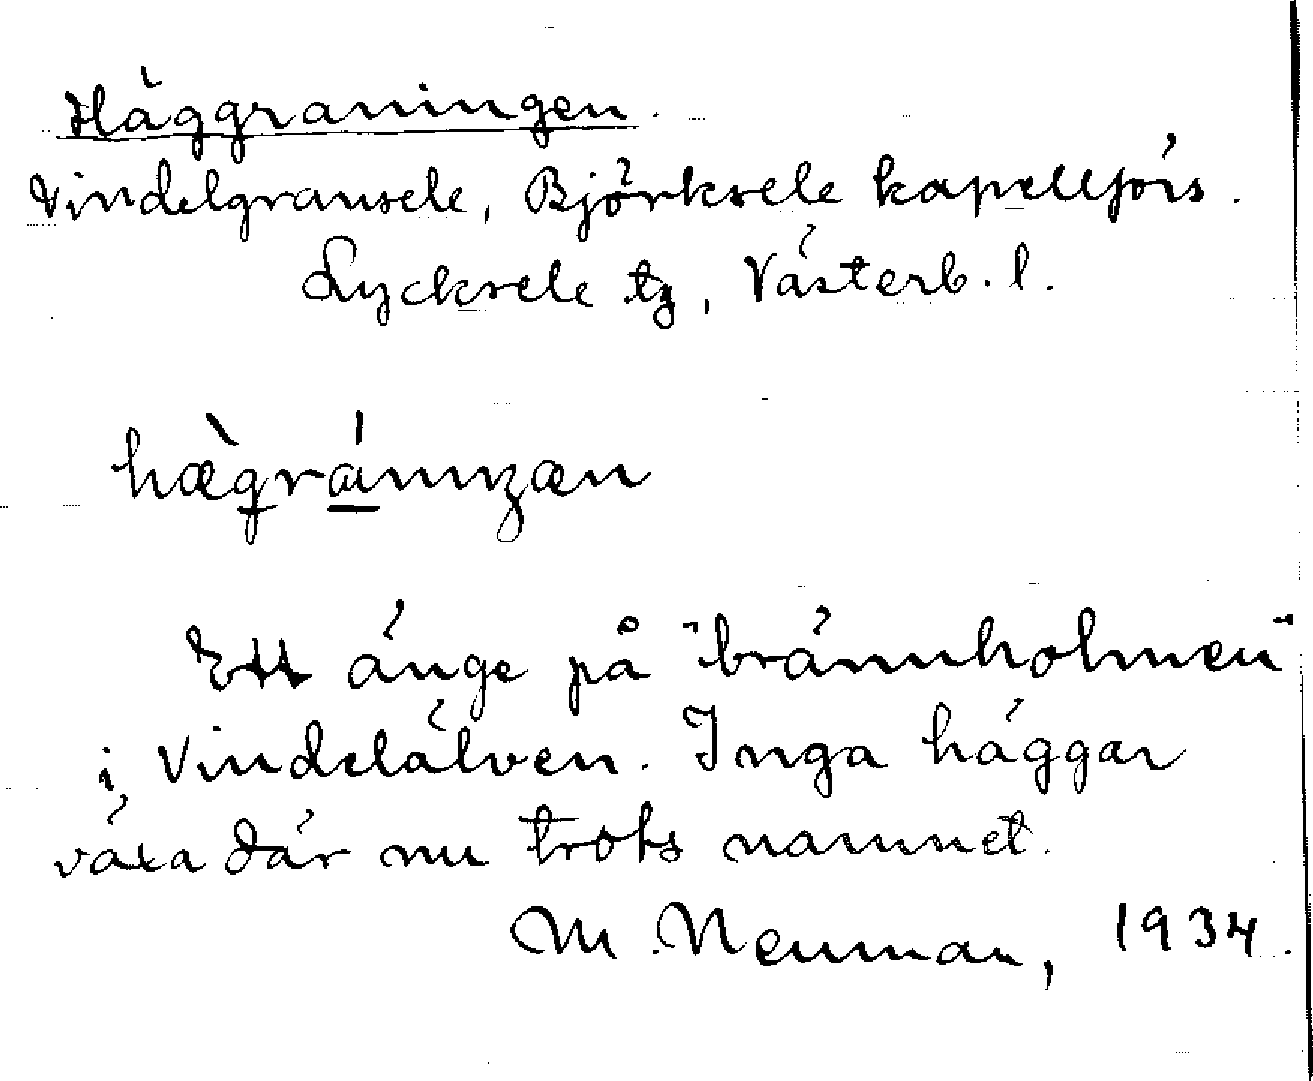 Häggraningen.
Vindelgransele, Björksele kapellförs.
Lycksele tg, Västerb. l.
hæ̀gránɩŋæn
Ett änge på "brännholmen"
i Vindelälven. Inga häggar
växa där nu trots namnet.
M. Neuman, 1934.